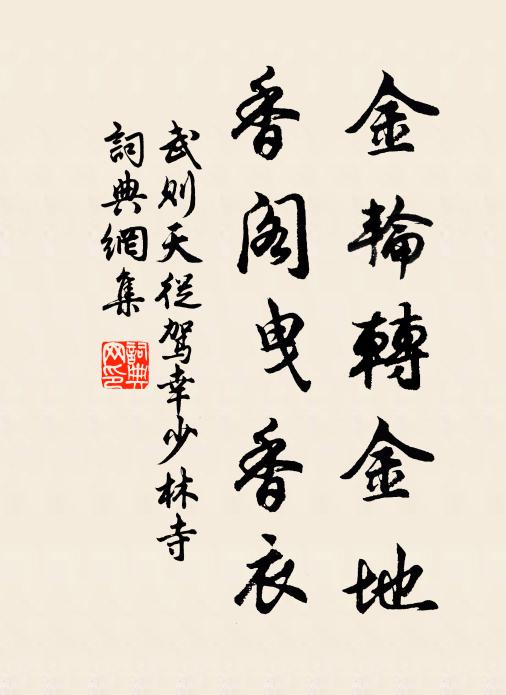 金輪轉金地
香閣曳香衣
武則天從駕幸少林寺
詞典網集
詞典網印